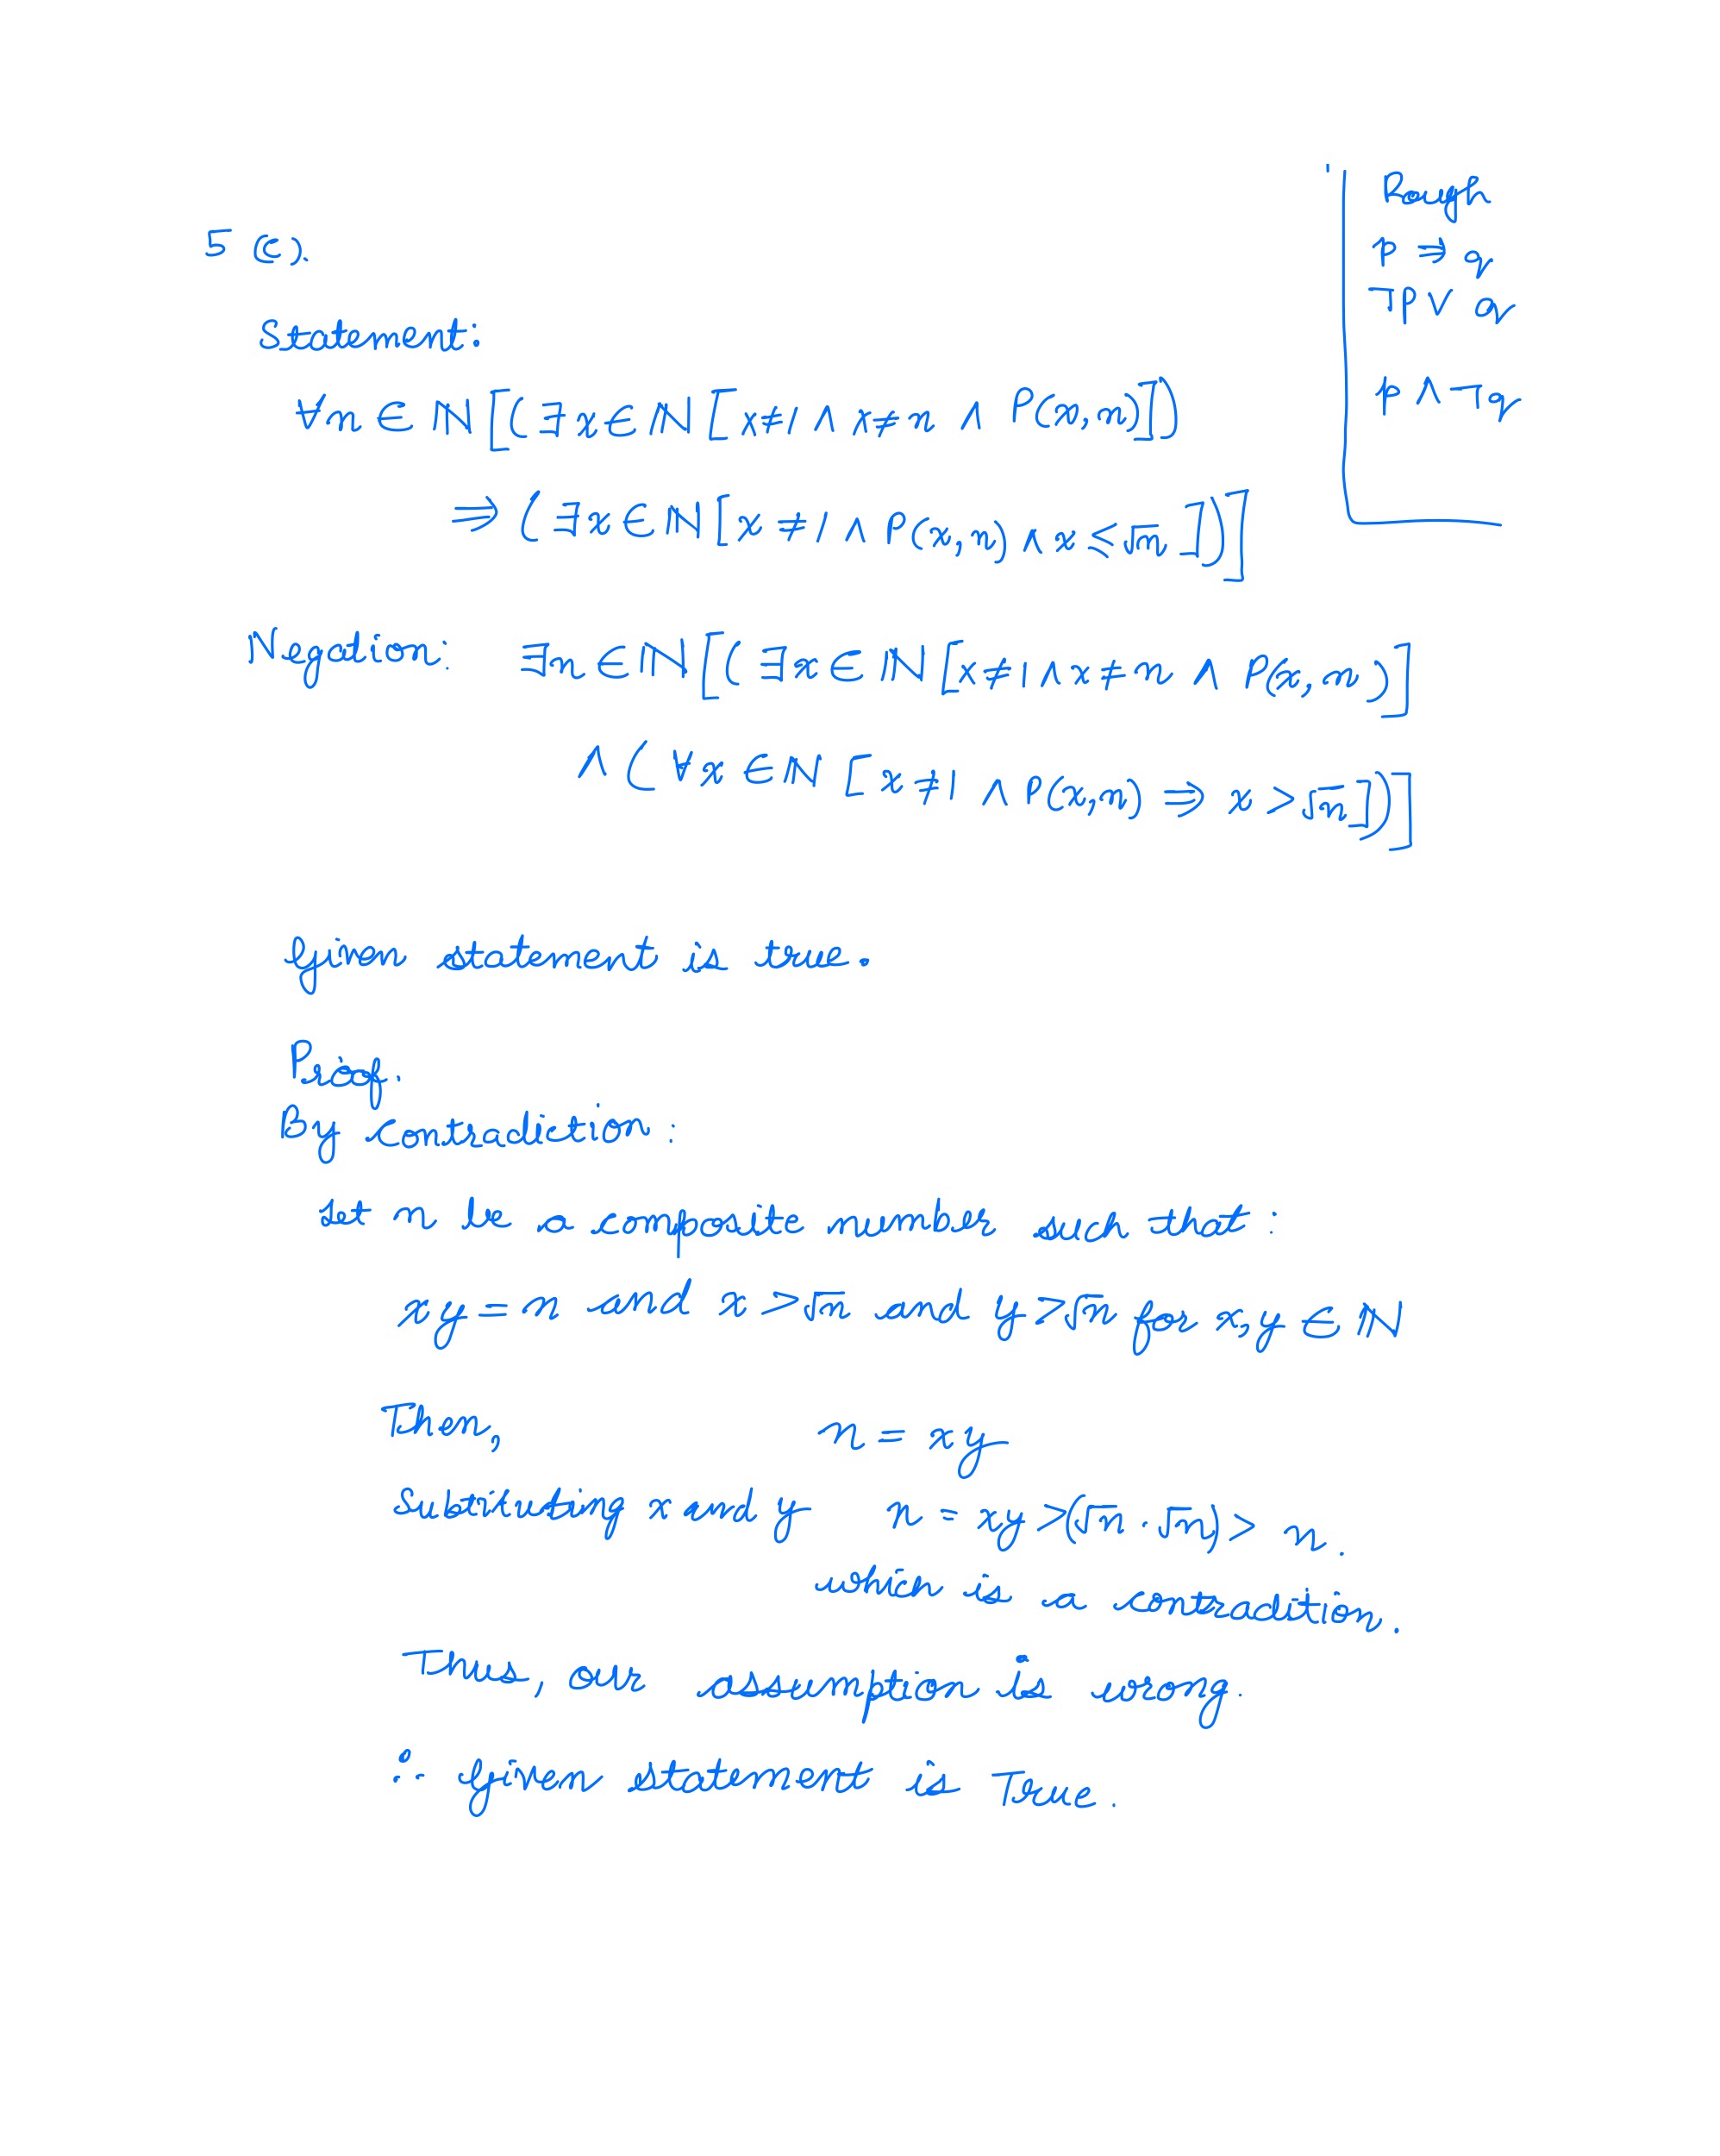 5 (c).
Statement:
∀n ∈ ℕ [(∃x ∈ ℕ [x ≠ 1 ∧ x ≠ n ∧ P(x, n)])
⇒ (∃x ∈ ℕ [x ≠ 1 ∧ P(x, n) ∧ x ≤ √n ])]
Rough
p ⇒ q
¬p ∨ q
p ∧ ¬q
Negation: ∃n ∈ ℕ [(∃x ∈ ℕ [x ≠ 1 ∧ x ≠ n ∧ P(x, n)]
∧ (∀x ∈ ℕ [x ≠ 1 ∧ P(x, n) ⇒ x > √n])]
Given statement is true.
Proof.
By contradiction:
Let n be a composite number such that:
xy = n and x > √n and y > √n for x, y ∈ ℕ
Then, n = xy
substituting x and y n = xy > (√n · √n) > n.
which is a contradition.
Thus, our assumption is wrong.
∴ Given statement is True.